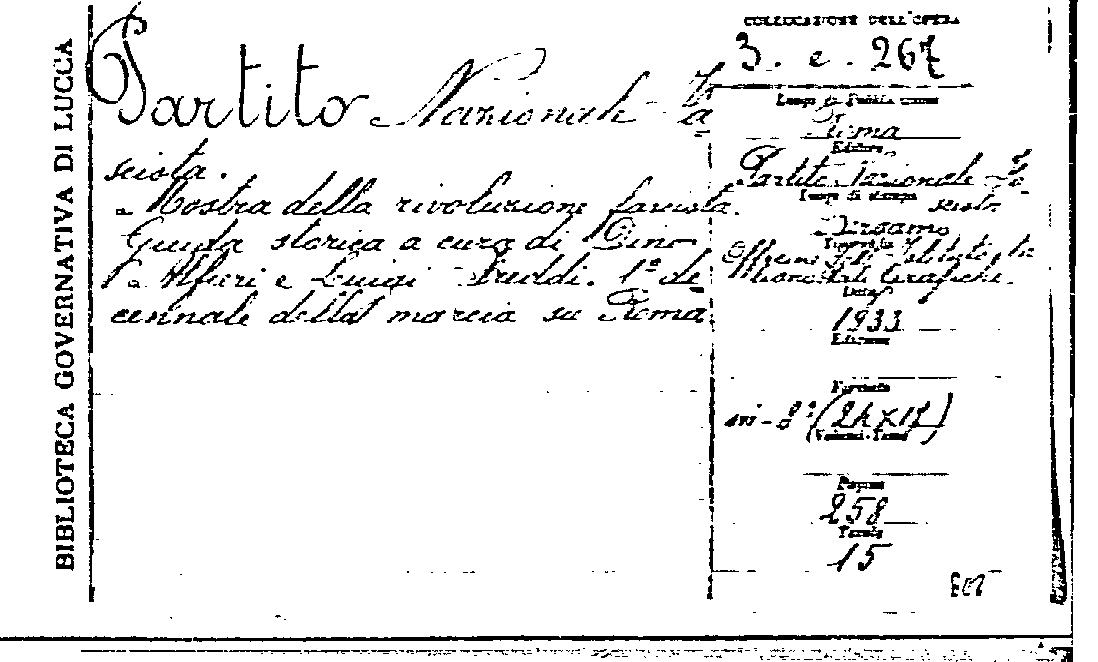 BIBLIOTECA GOVERNATIVA DI LUCCA
Partito Nazionale Fa=
scista.
Mostra della rivoluzione fascista.
Guida storica a cura di Dino
Alfieri e Luigi Freddi. 1° de=
cennale della marcia su Roma.
COLLOCAZIONE DELL'OPERA
3. e. 267
Luogo di Pubblicazione
Roma
Editore
Partito Nazionale Fa=
scista
Luogo di stampa
Bergamo
Tipografia
Officine dell'Istituto Ita
Grafiche.
Data
1933
Edizione
Formato
in-8° (24×17)
(Volumi-Tomi)
Pagine
258
Tavole
15